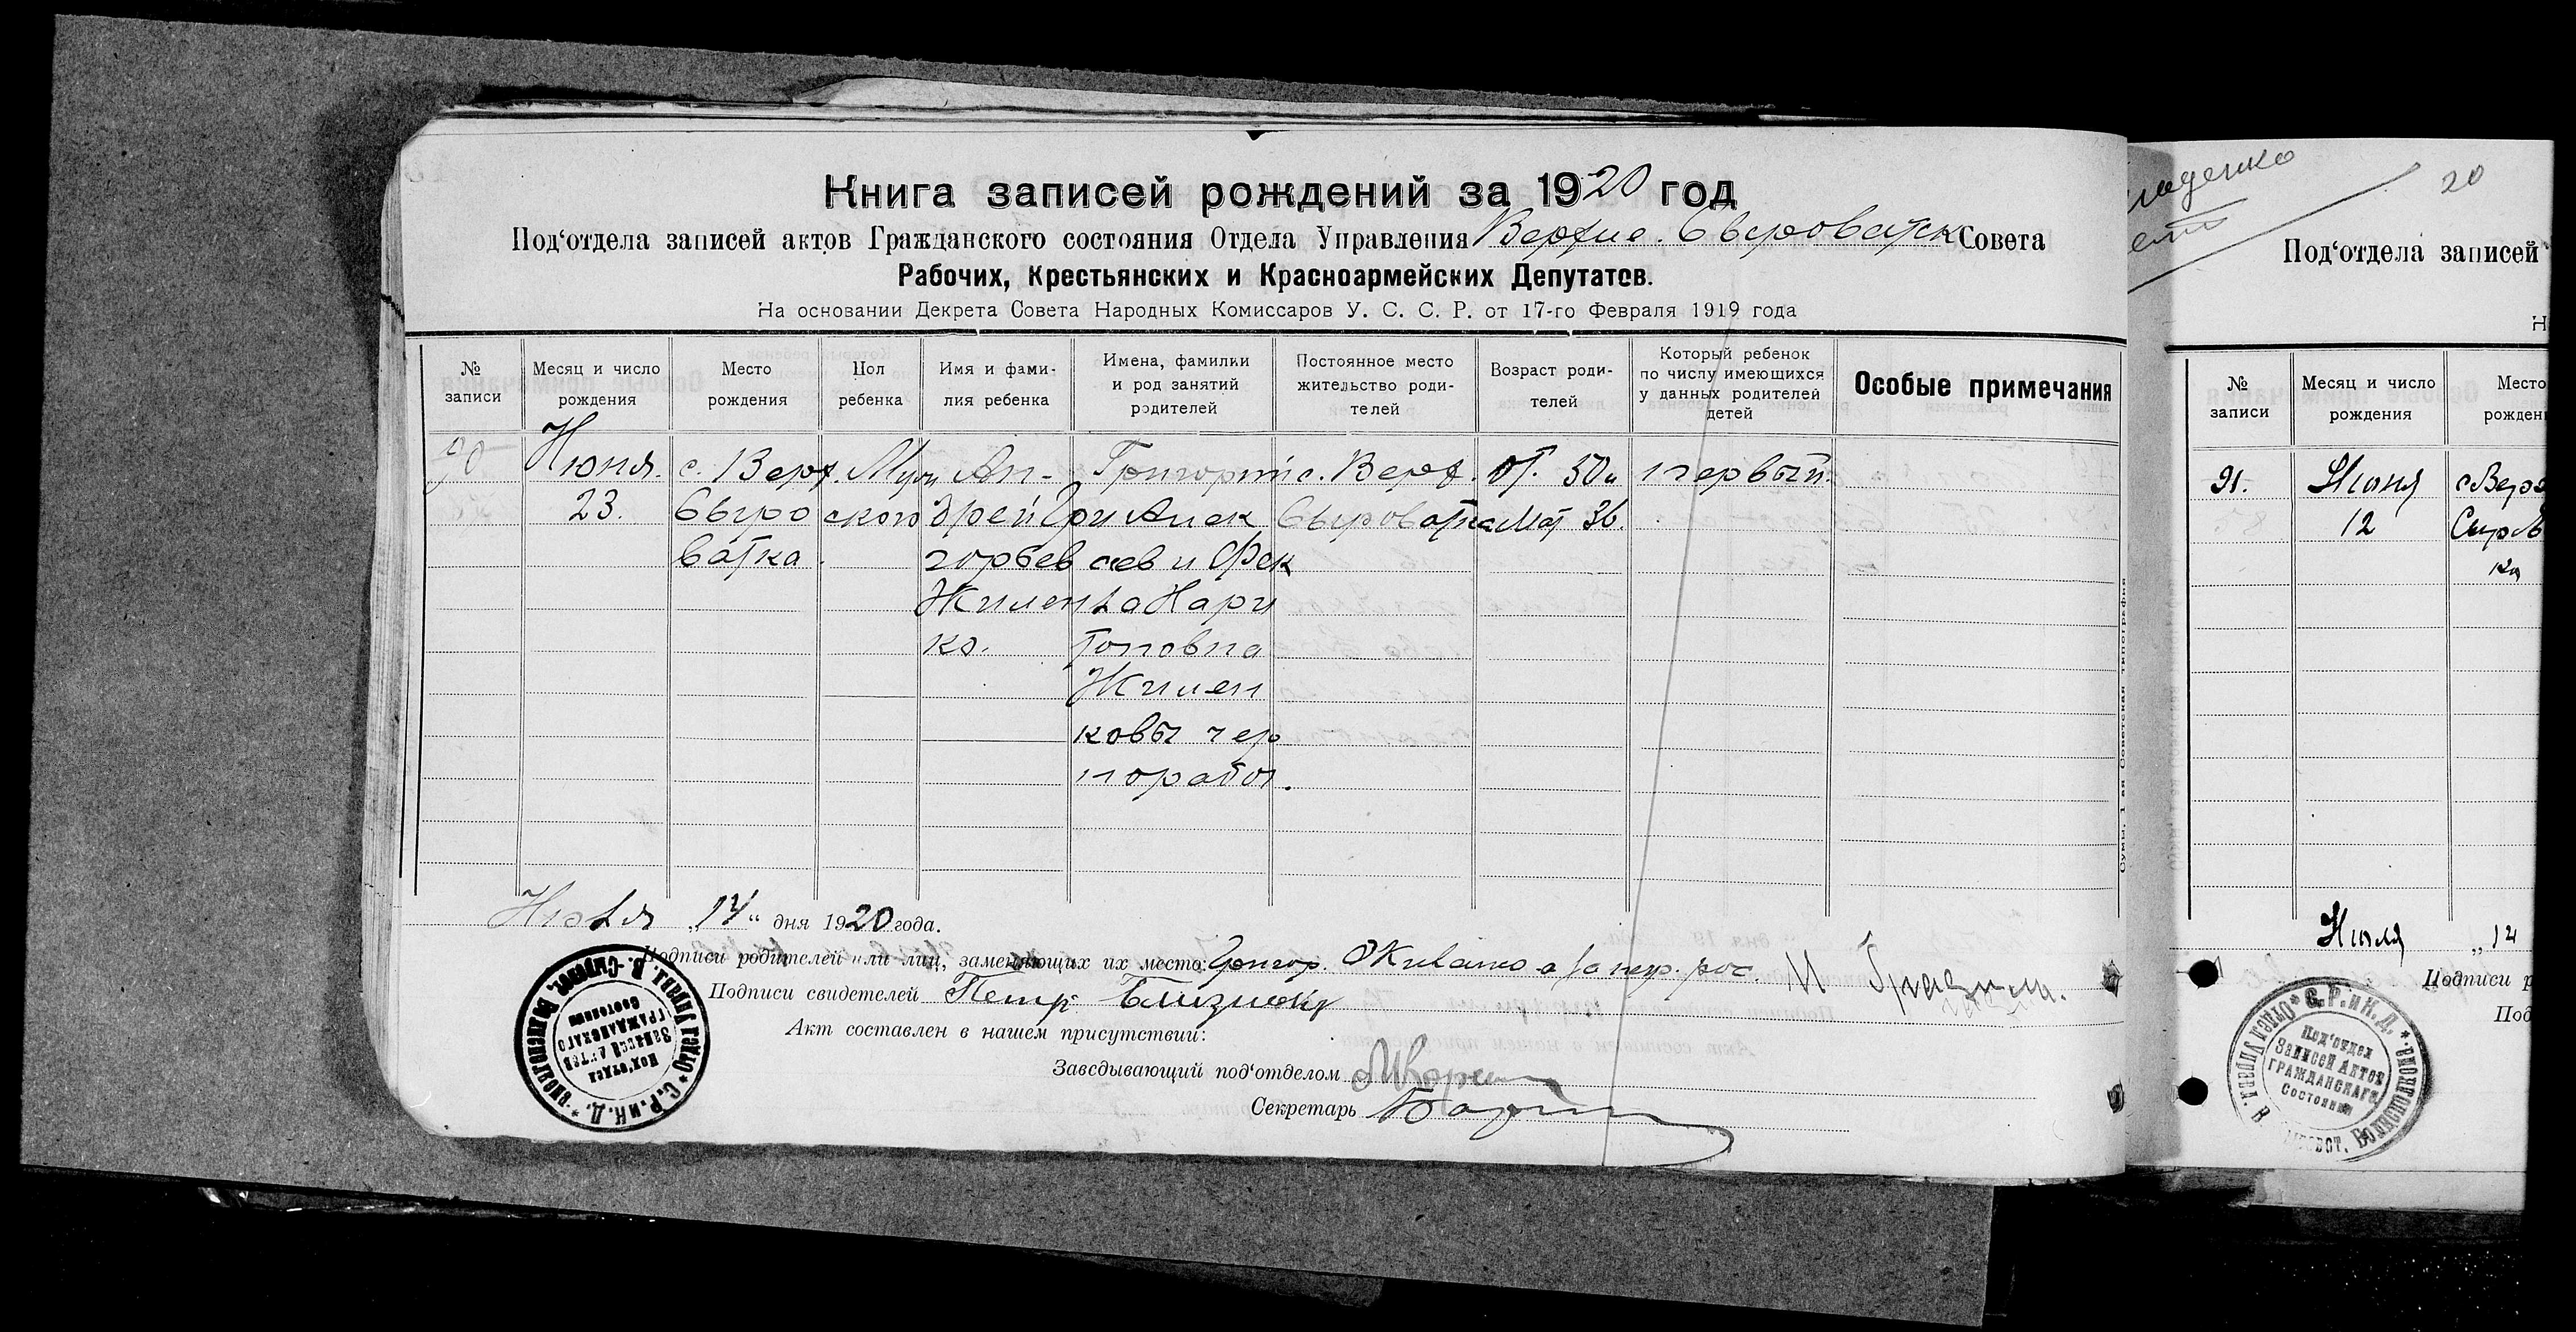 Книга записей рождений за 1920 год
Под‘отдела записей актов Гражданского состояния Отдела Управления Верхне. Сыроватск Совета
Рабочих, Крестьянских и Красноармейских Депутатов.
На основании Декрета Совета Народных Комиссаров У. С. С. Р. от 17-го Февраля 1919 года
№ записи
Месяц и число рождения
Место рождения
Пол ребенка
Имя и фамилия ребенка
Имена, фамилии и род занятий родителей
Постоянное место жительство родителей
Возраст родителей
Который ребенок по числу имеющихся у данных родителей детей
Особые примечания
90
Июня
23.
с. Верх.
Сыро
ватка
Муж
ского
Ан-
дрей Гри
горьев
Жилен
ко.
Григорий
Алек
сеев и Фек
ла Хари
тоновна
Жилен
ковы чер
норабоч.
с. Верх.
Сыроватка
от. 30 и
мат 36.
первый
Июля „14“ дня 1920 года.
Подписи родителей или лиц, заменяющих их место:
Подписи свидетелей Петр
Акт составлен в нашем присутствии:
Заведывающий под‘отделом
Секретарь
С.Р. и К.Д. * Отдел Управл. В.-Сыроват. Волисполкома *
Под‘отдел
Записей Актов
ГРАЖДАНСКАГО
Состояния
Сумы, 1-ая Советская типография
20
Под‘отдела записей
Н
№ записи
Месяц и число рождения
Место
рожден
91.
Июня
12
с Верх
Сыров
ка
Июля „14
Подписи р
Под
С.Р. и К.Д. * Отдел Управл. В.
Волисполкома *
Под‘отдел
Записей Актов
ГРАЖДАНСКАГО
Состояния